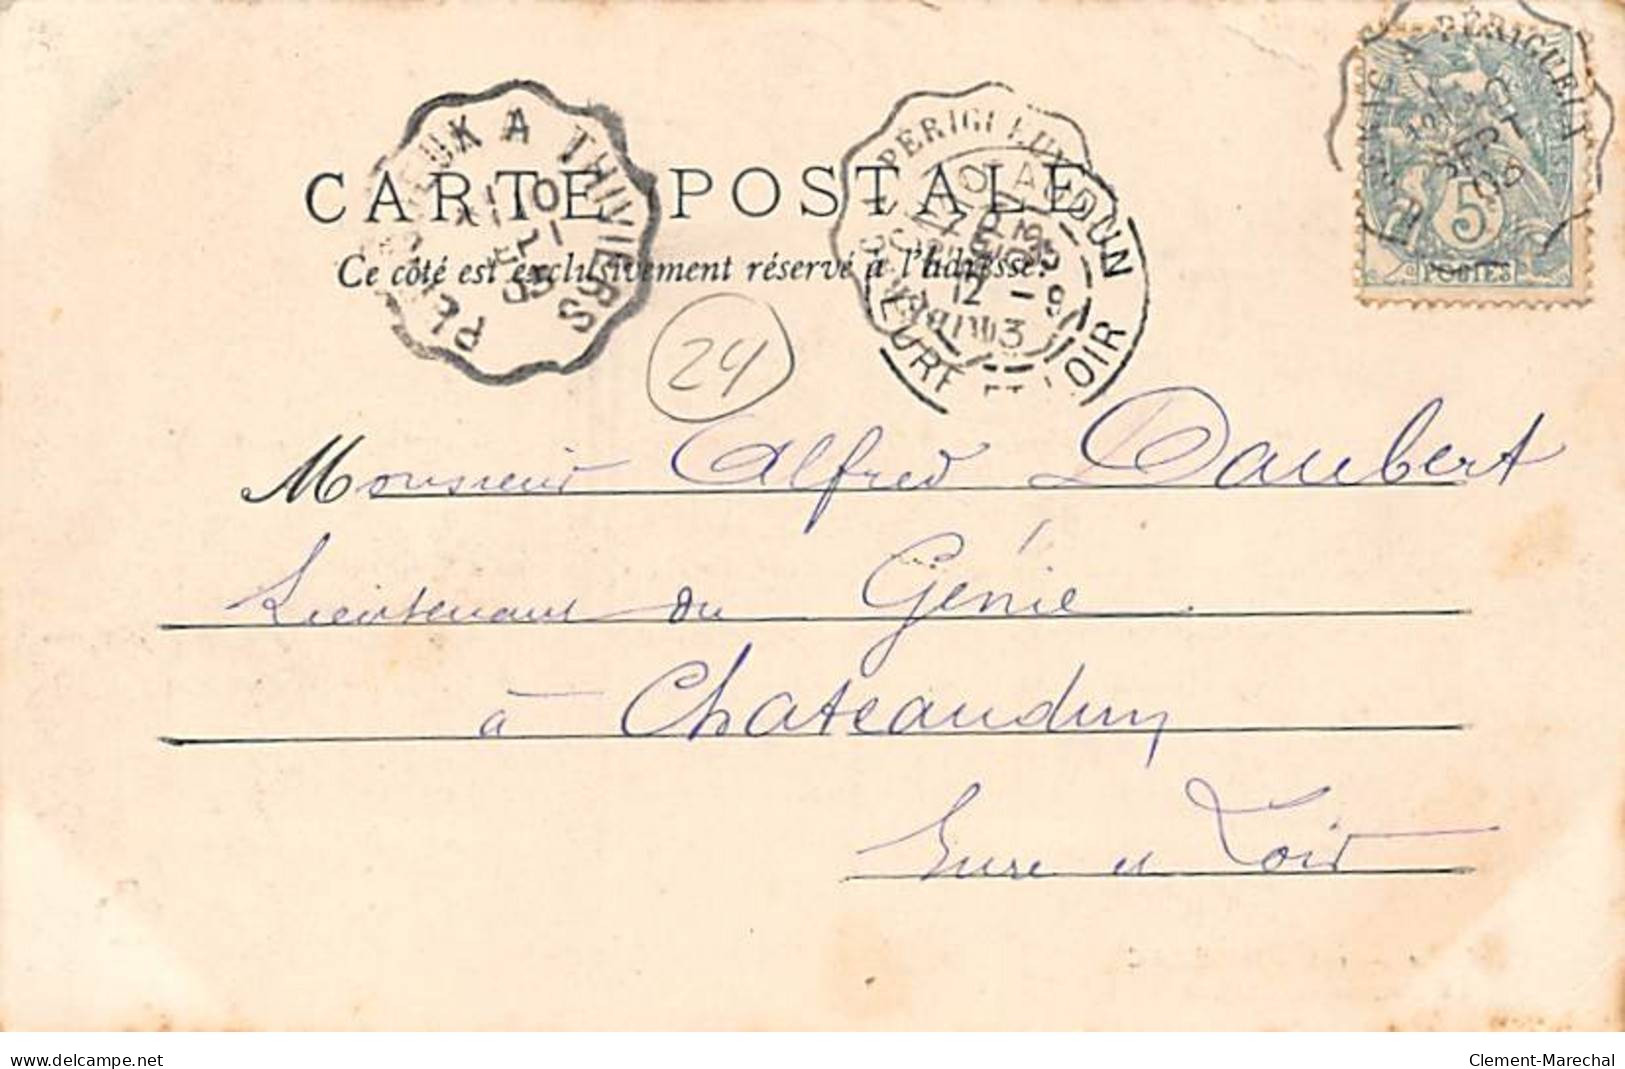 CARTE POSTALE
Ce côté est exclusivement réservé à l'adresse.
PÉRIGUEUX A THIVIERS
PERIGUEUX
CHATEAUDUN
12 -9
EURE ET LOIR
A PÉRIGUEUX
SEPT
5
POSTES
24
Monsieur Alfred Daubert
Lieutenant du Génie
à Chateaudun
Eure et Loir
delcampe.net
Clement-Marechal